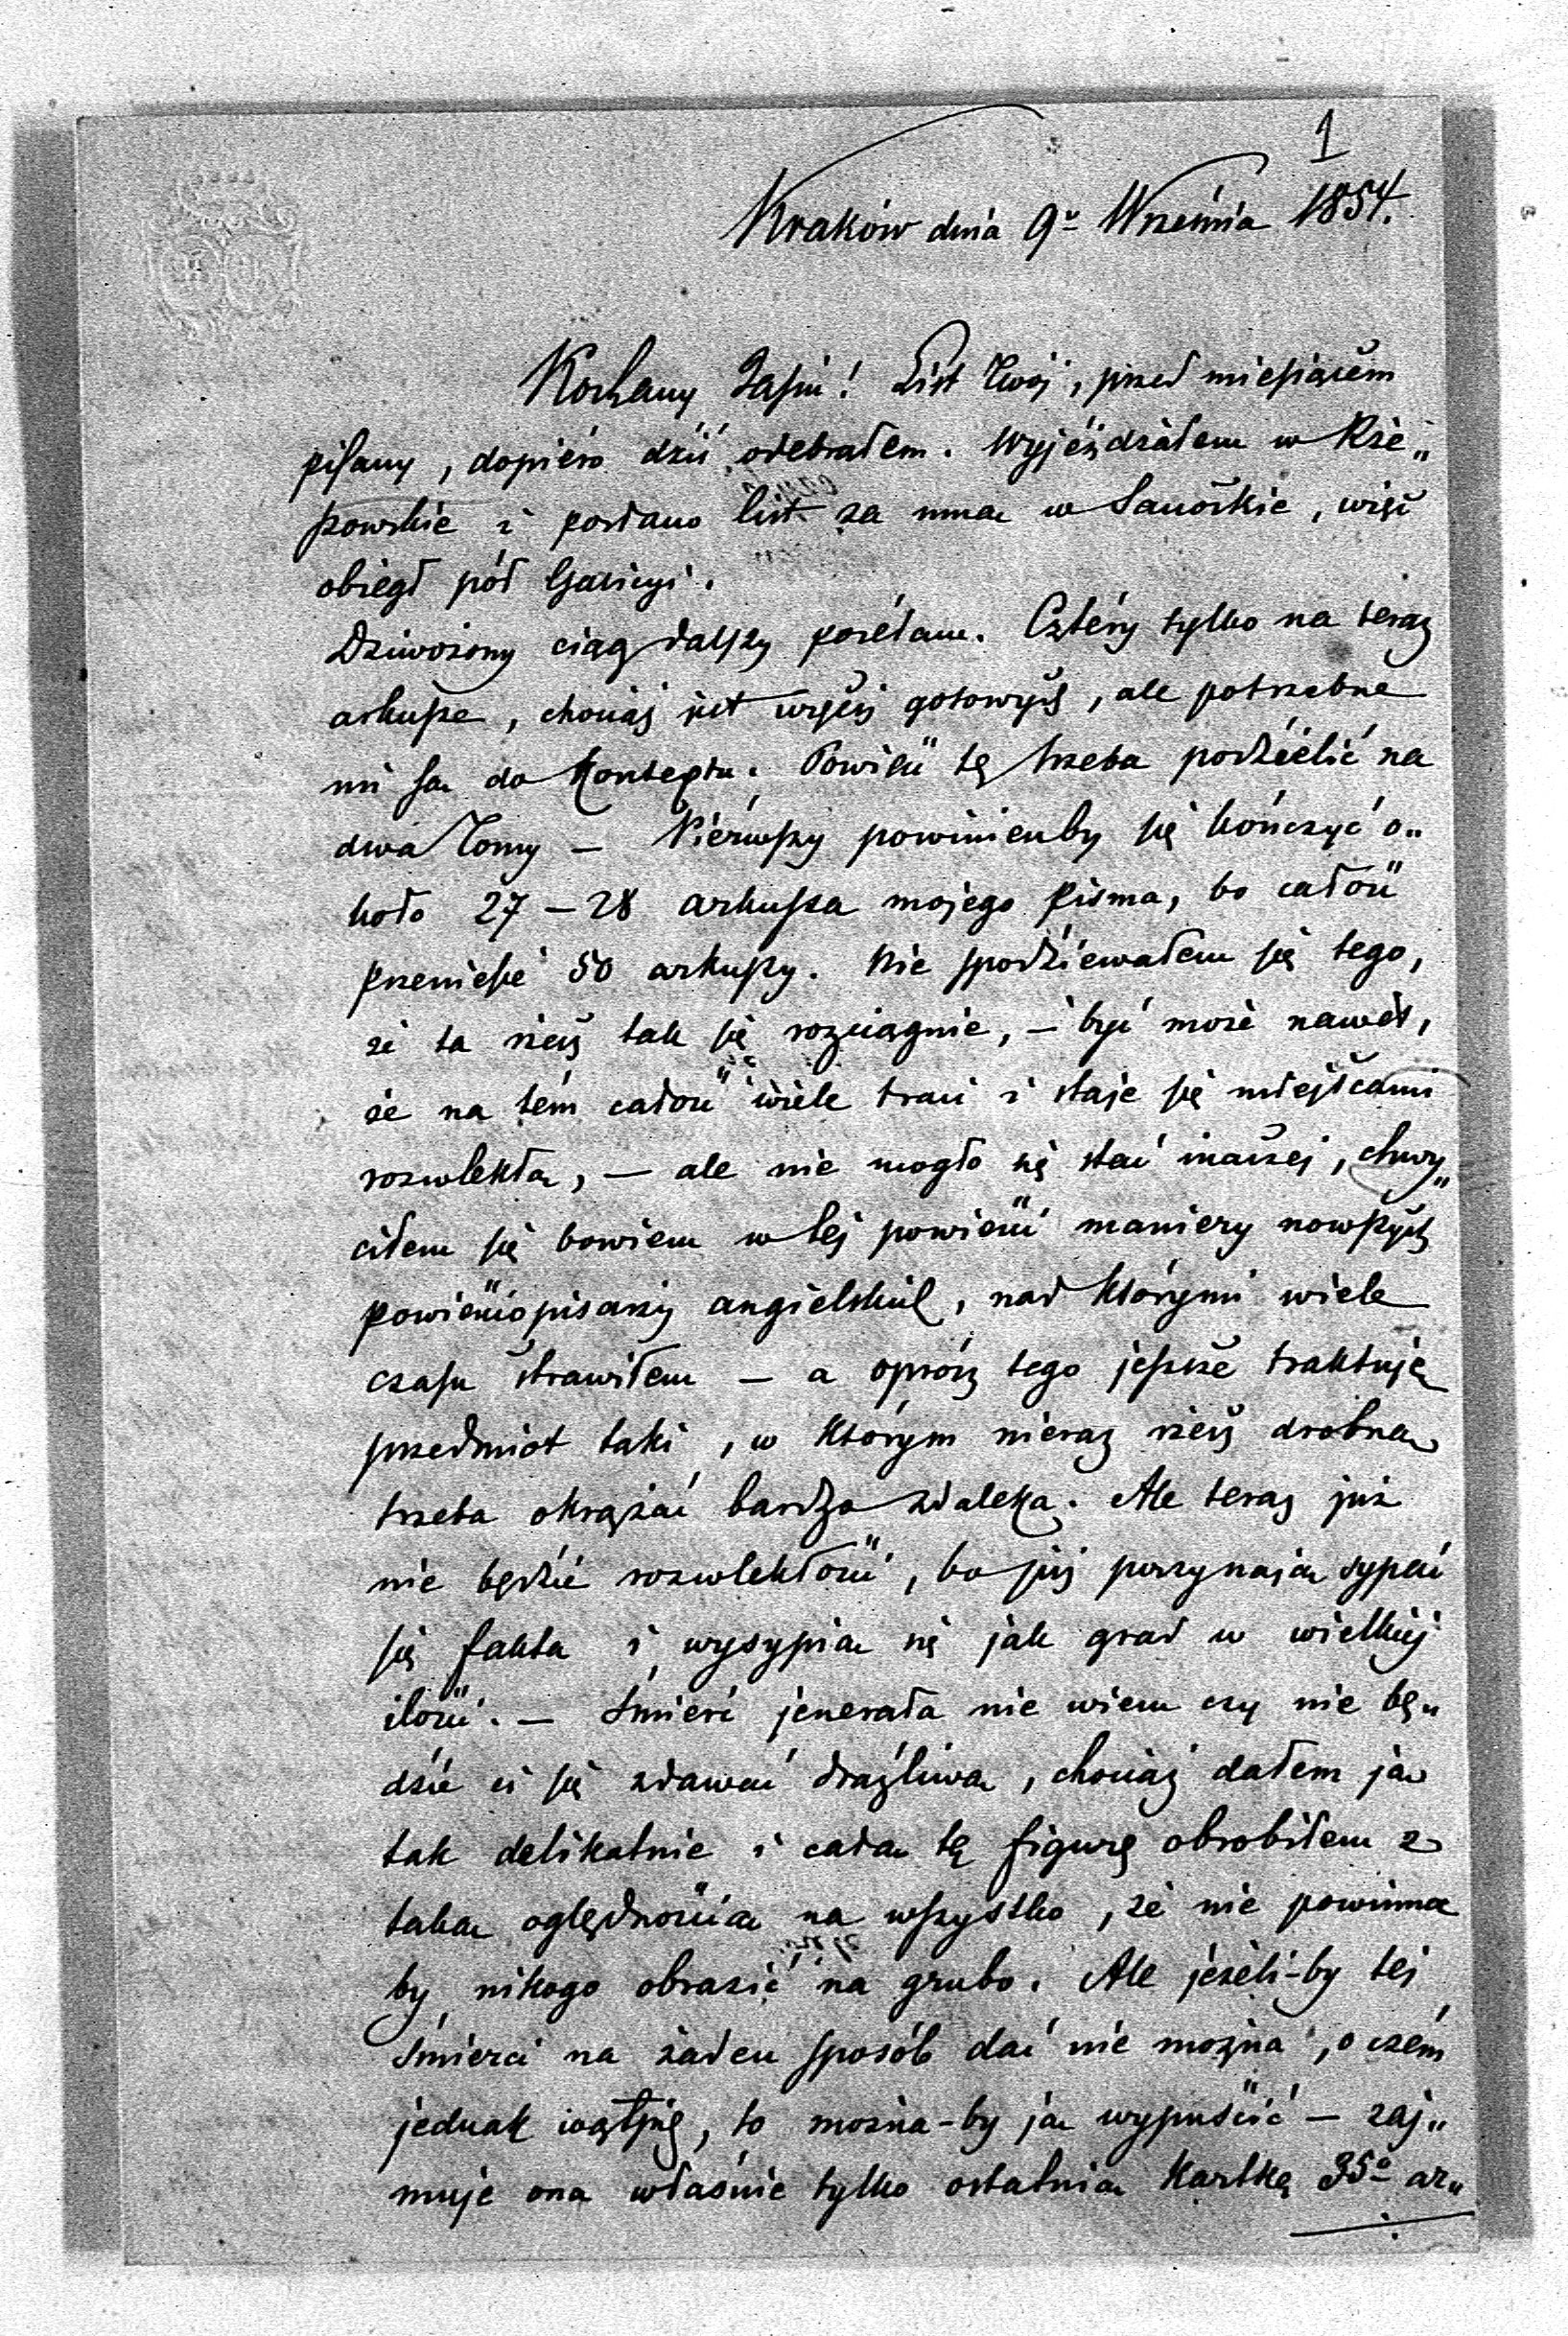 1
Kraków dnia 9º Września 1854.
Kochany Jasiu! List Twój, przed miesiącem
pisany, dopiéro dziś odebrałem. Wyjeżdżałem w Rze„
szowskie i posłano list za mną w Sanockie, więc
obiegł pół Galicyi.
Dziwożony ciąg dalszy posełam. Cztéry tylko na teraz
arkusze, chociaż jest więcéj gotowych, ale potrzebne
mi są do kontextu. Powieść tę trzeba podzielić na
dwa Tomy — Piérwszy powinienby się kończyć o„
koło 27 — 28 arkusza mojego pisma, bo całość
przeniesie 50 arkuszy. Nie spodziéwałem się tego,
że ta rzecz tak się rozciągnie, — być może nawét,
że na tém całość wiele traci i staje się miejscami
rozwlekłą, — ale nie mogło się stać inaczej, chwy„
ciłem się bowiem w tej powieści maniery nowszych
powieściopisarzy angielskich, nad którymi wiele
czasu strawiłem — a oprócz tego jeszcze traktuję
przedmiot taki, w którym nieraz rzecz drobną
trzeba okrążać bardzo zdaleka. Ale teraz już
nie będzie rozwlekłości, bo już poczynają sypać
się fakta i wysypią się jak grad w wielkiéj
ilości. — Śmierć jenerała nie wiem czy nie bę„
dzie ci się zdawać drażliwą, chociaż dałem ją
tak delikatnie i całą tę figurę obrobiłem z
taką oględnością na wszystko, że nie powinna
by nikogo obrazić na grubo. Ale jeżeli-by téj
śmierci na żaden sposób dać nie można, o czém
jednak wątpię, to można-by ją wypuścić — zaj„
muje ona właśnie tylko ostatnią kartkę 35º ar„